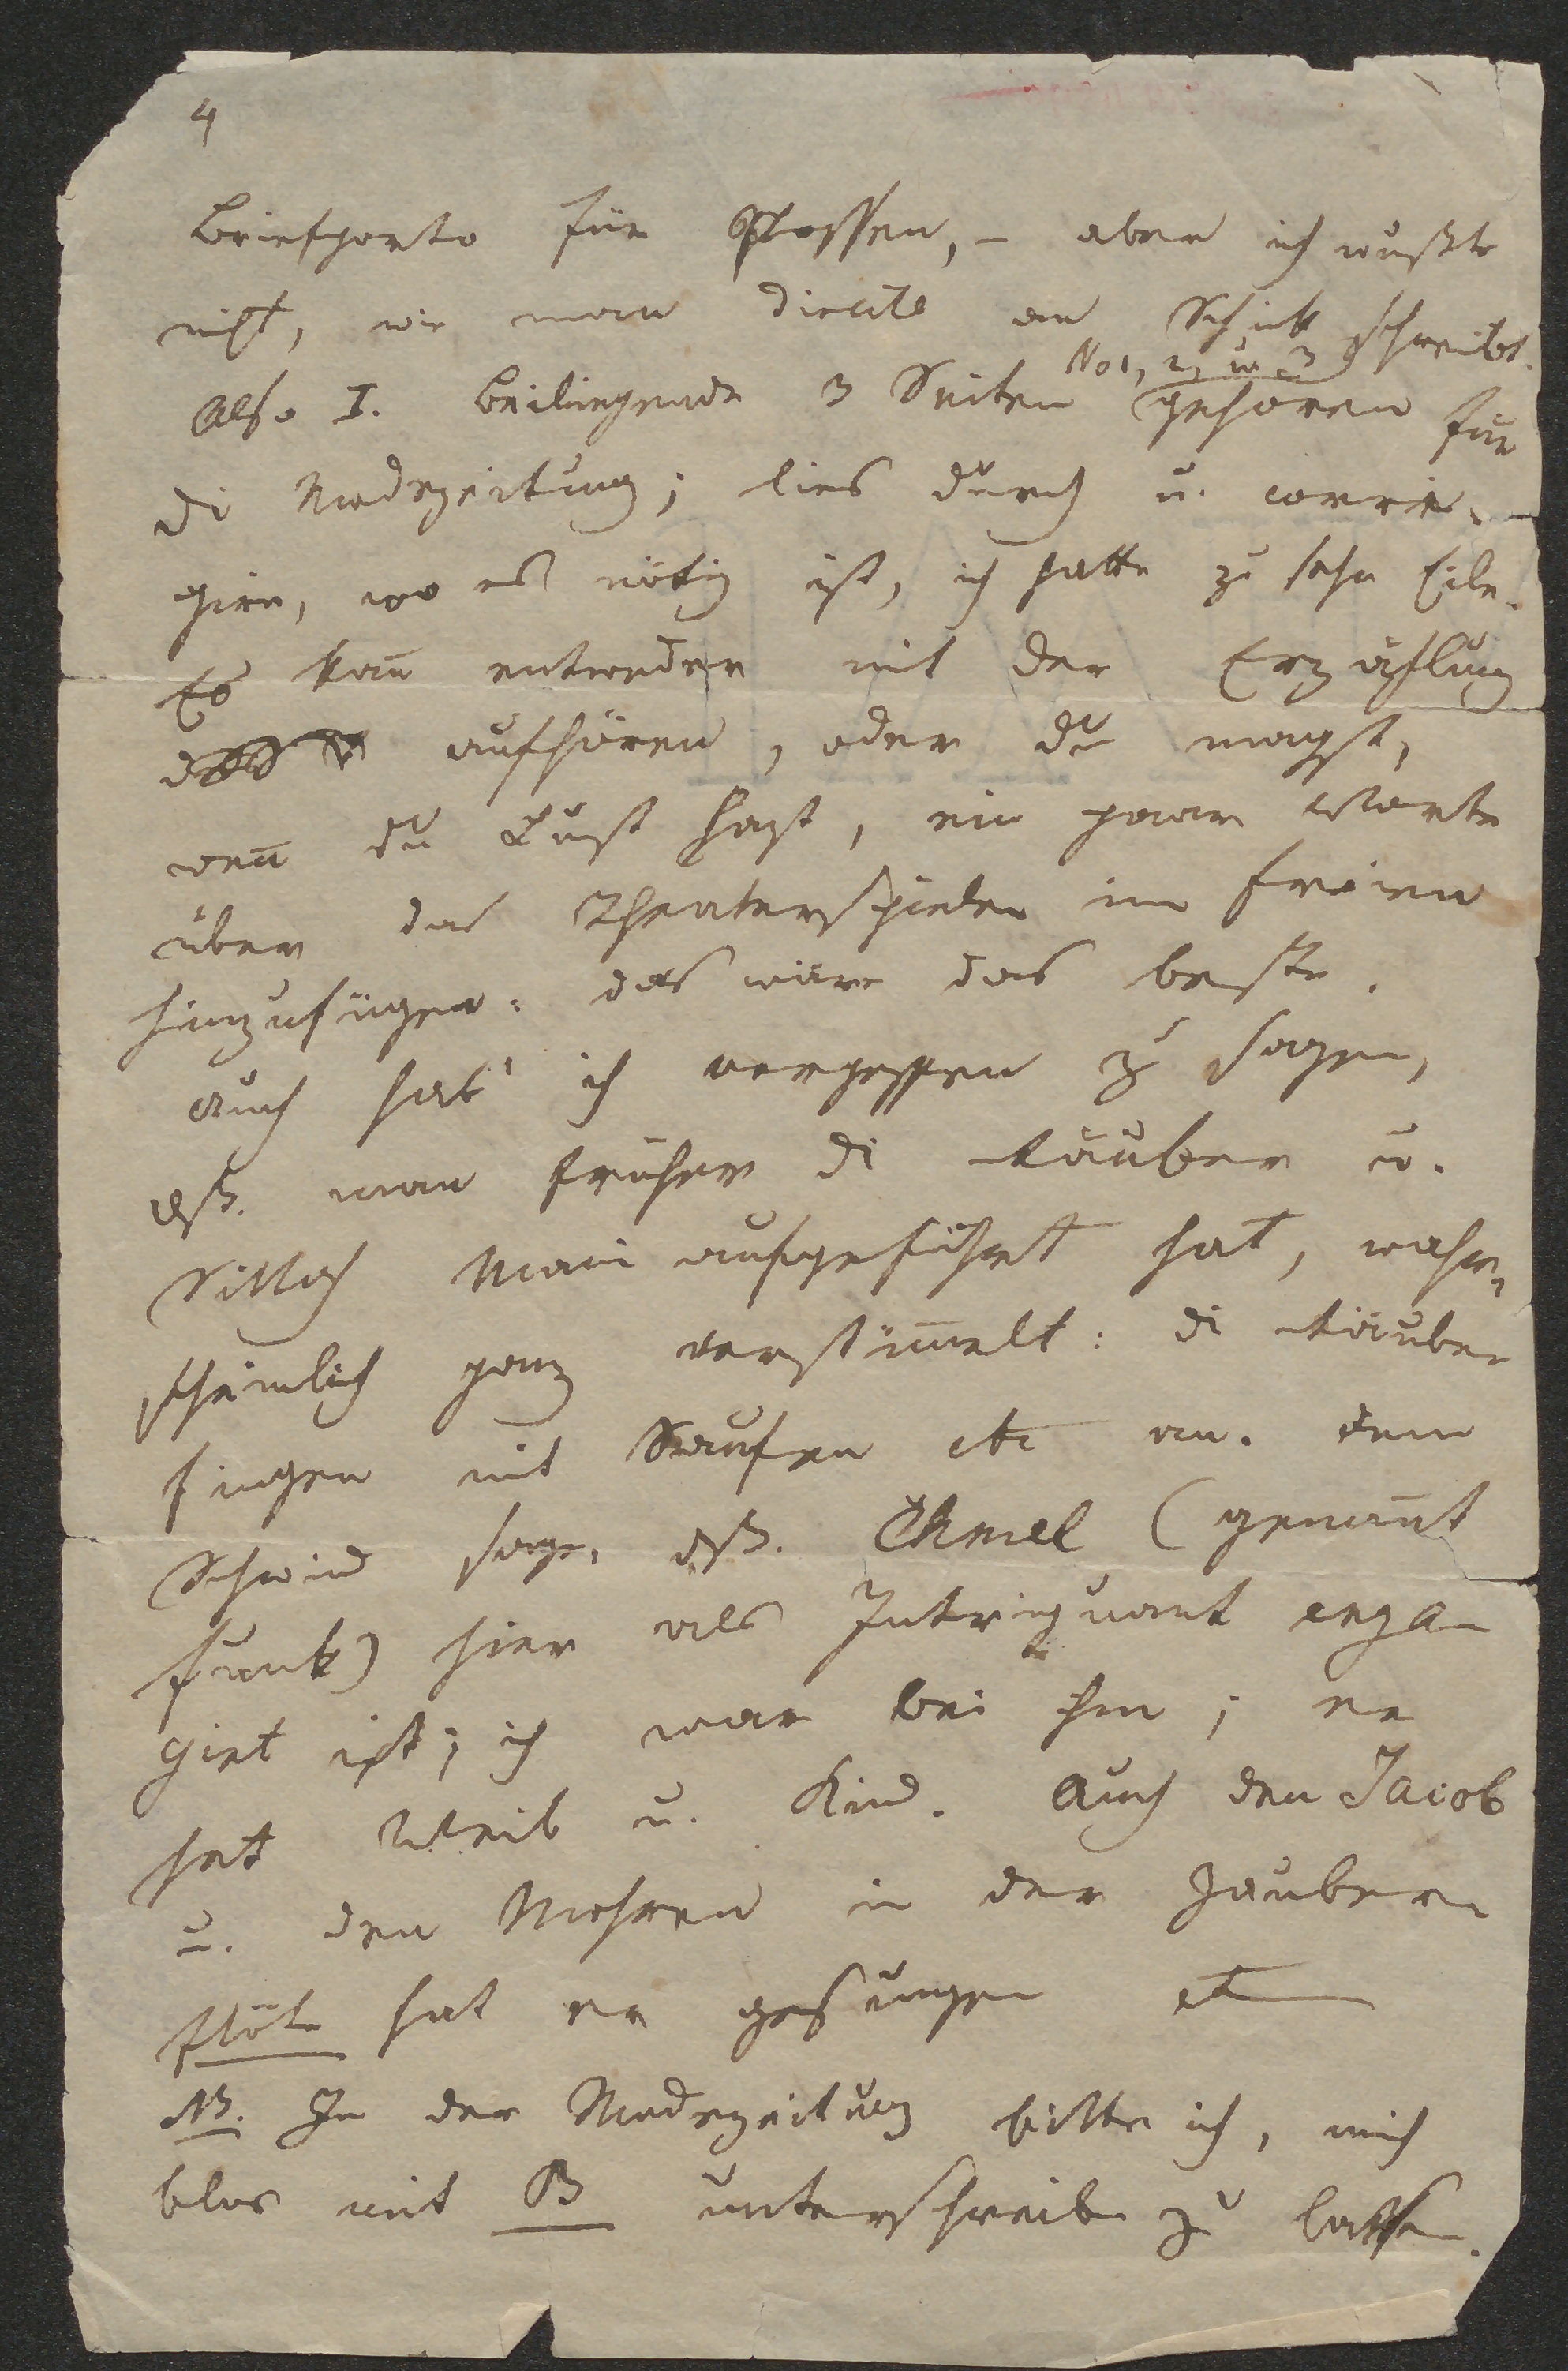 4
Briefporto für Possen, – aber ich wußte
nicht, wie man directe an Schick schreibt.
Also I. Beiliegende 3 Seiten No 1, 2, u 3 gehören für
di Modezeitung; lies durch u. corri-
gire, wo es nötig ist, ich hatte zu sehr Eile.
Es kan̄ entweder mit der Erzählung
aufhören, oder du magst,
wen̄ du Lust hast, ein paar Worte
über das Theaterspielen im Freien
hinzufügen: das wäre das beste.
Auch hab' ich vergessen zu sagen,
dß. man früher di Räuber u.
Sittah Mani aufgeführt hat, wahr-
scheinlich ganz verstüm̄elt: di Räuber
fingen mit Saufen etc an. Dem
Schwind sage, dß. Chmel (genan̄t
Funk) hier als Intriguant enga-
girt ist; ich war bei ihm; er
hat Weib u. Kind. Auch den Jacob
u. den Mohren in der Zauber-
flöte hat er gesungen etc
NB. In der Modezeitung bitte ich, mich
blos mit B unterschreiben zu lassen.